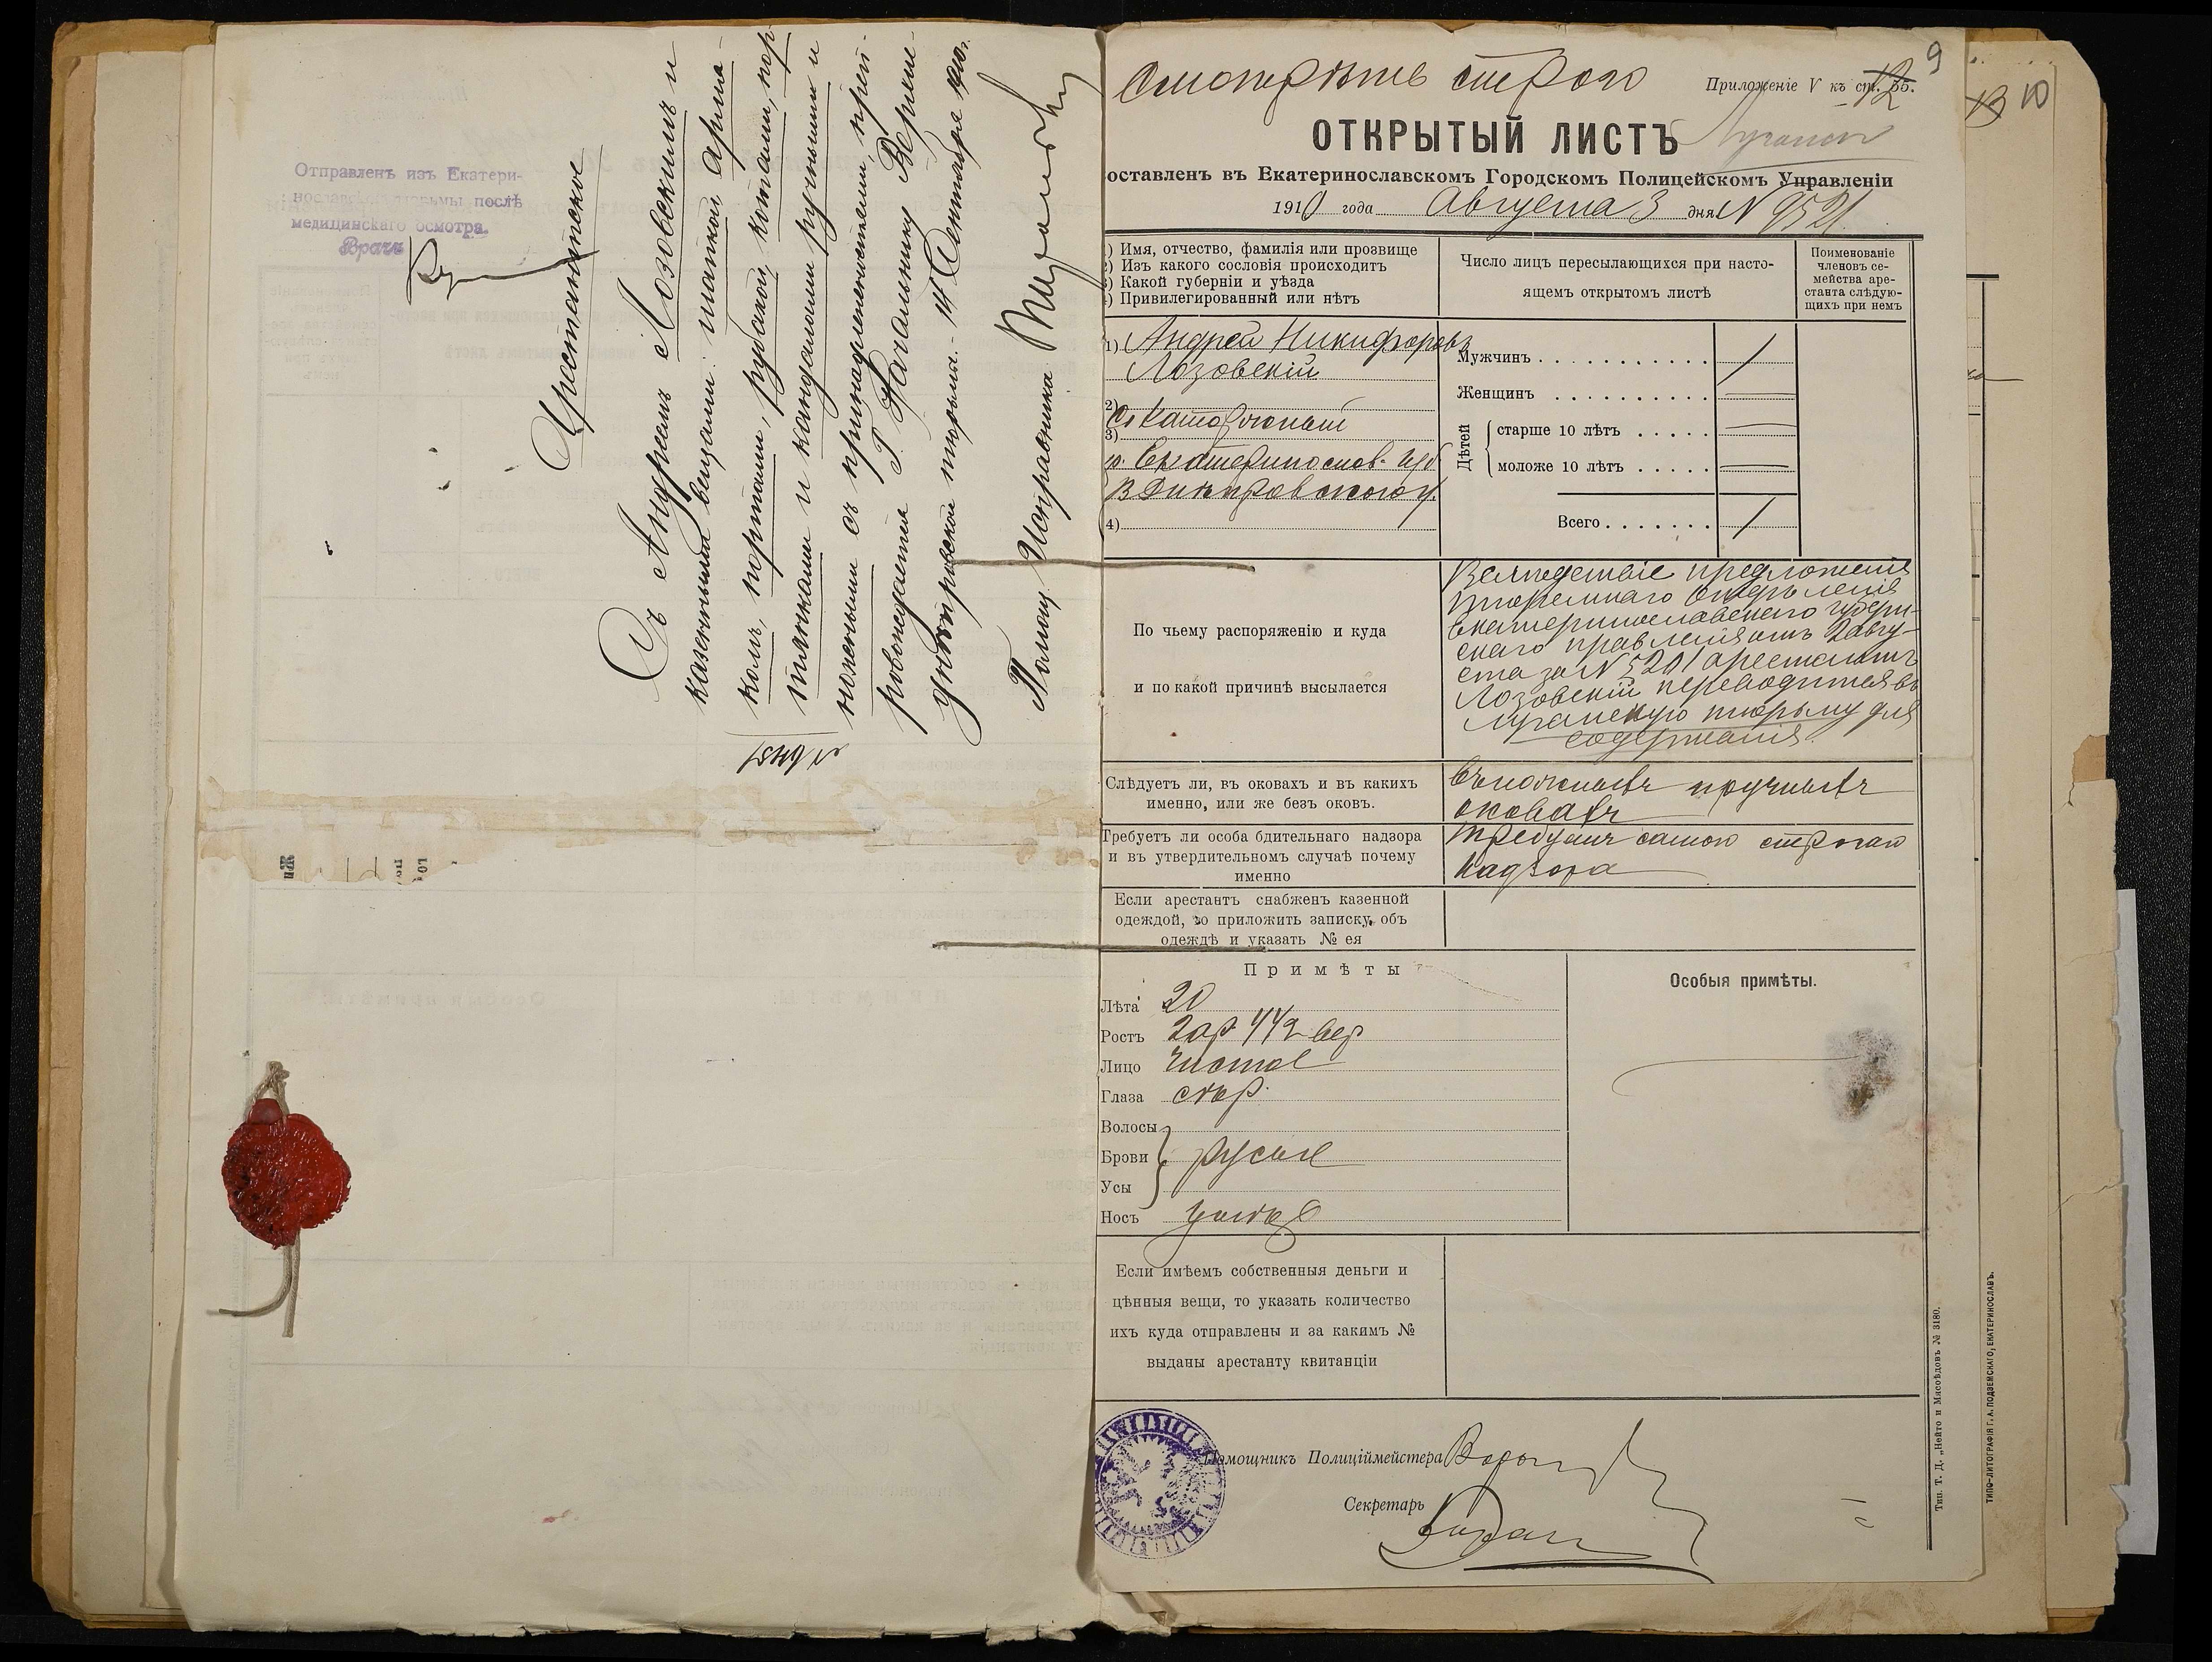 Отправленъ изъ Екатери-
нославской тюрьмы послѣ
медицинскаго осмотра.
Врачъ
Арестантское
Съ Андреемъ Лозовскимъ и
казенными вещами: шапкой, арма-
комъ, портами, рубахой, котами, пор-
тянками и кандалами ручными и
ножными съ принадлежностями, преп-
ровождается Г. Начальнику Верхне-
днѣпровской тюрьмы. 14 Сентября 1910 г.
Помощ. Исправника
9
10
Осмотрѣть строго
Приложеніе V къ ст. 55.
12
ОТКРЫТЫЙ ЛИСТЪ
Луганск
оставленъ въ Екатеринославскомъ Городскомъ Полицейскомъ Управленіи
1910 года Августа 3 дня N 9521
1) Имя, отчество, фамилія или прозвище
2) Изъ какого сословія происходитъ
3) Какой губерніи и уѣзда
4) Привилегированный или нѣтъ
Число лицъ пересылающихся при насто-
ящемъ открытомъ листѣ
Поименованіе
членовъ се-
мейства аре-
станта слѣдую-
щихъ при немъ
1) Андрей Никифоровъ
Лозовскій
2)
Сс каторжный
3)
Екатеринослав. губ
В Днѣпровскаго у.
4)
Мужчинъ 1
Женщинъ —
Дѣтей
старше 10 лѣтъ —
моложе 10 лѣтъ —
Всего 1
По чьему распоряженію и куда
и по какой причинѣ высылается
Вслѣдствіе предложенія
тюремнаго отдѣленія
Екатеринославскаго губерн-
скаго правленія отъ 2 авгу-
ста за N 5201 арестантъ
Лозовскій переводится въ
Луганскую тюрьму для
содержанія.
Слѣдуетъ ли, въ оковахъ и въ какихъ
именно, или же безъ оковъ.
Въ ножныхъ и ручныхъ
оковахъ
Требуетъ ли особа бдительнаго надзора
и въ утвердительномъ случаѣ почему
именно
Требуетъ самаго строгаго
надзора
Если арестантъ снабженъ казенной
одеждой, то приложить записку, объ
одеждѣ и указать № ея
Примѣты
Особыя примѣты.
Лѣта 20
Ростъ 2 ар 4 1/2 вер
Лицо чистое
Глаза сѣр.
Волосы
Брови русые
Усы
Носъ умѣр
Если имѣемъ собственныя деньги и
цѣнныя вещи, то указать количество
ихъ куда отправлены и за какимъ №
выданы арестанту квитанціи
Помощникъ Полиціймейстера
Секретарь
Тип. Т. Д. „Нейто и Мясоѣдовъ № 3180.
ТИПО-ЛИТОГРАФІЯ Г. А. ПОДЗЕМСКАГО, ЕКАТЕРИНОСЛАВЪ.